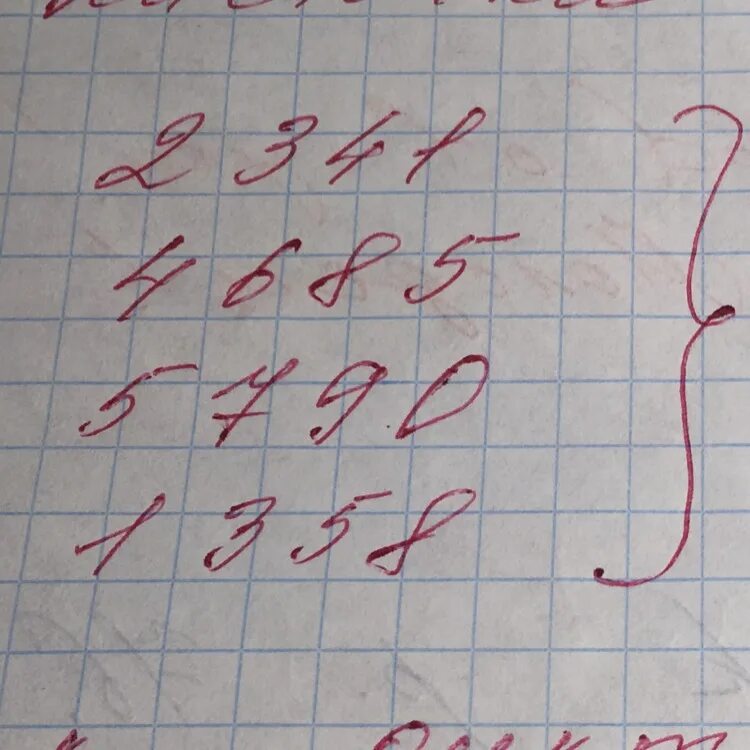 2 3 4 1
4 6 8 5
5 7 9 0
1 3 5 8